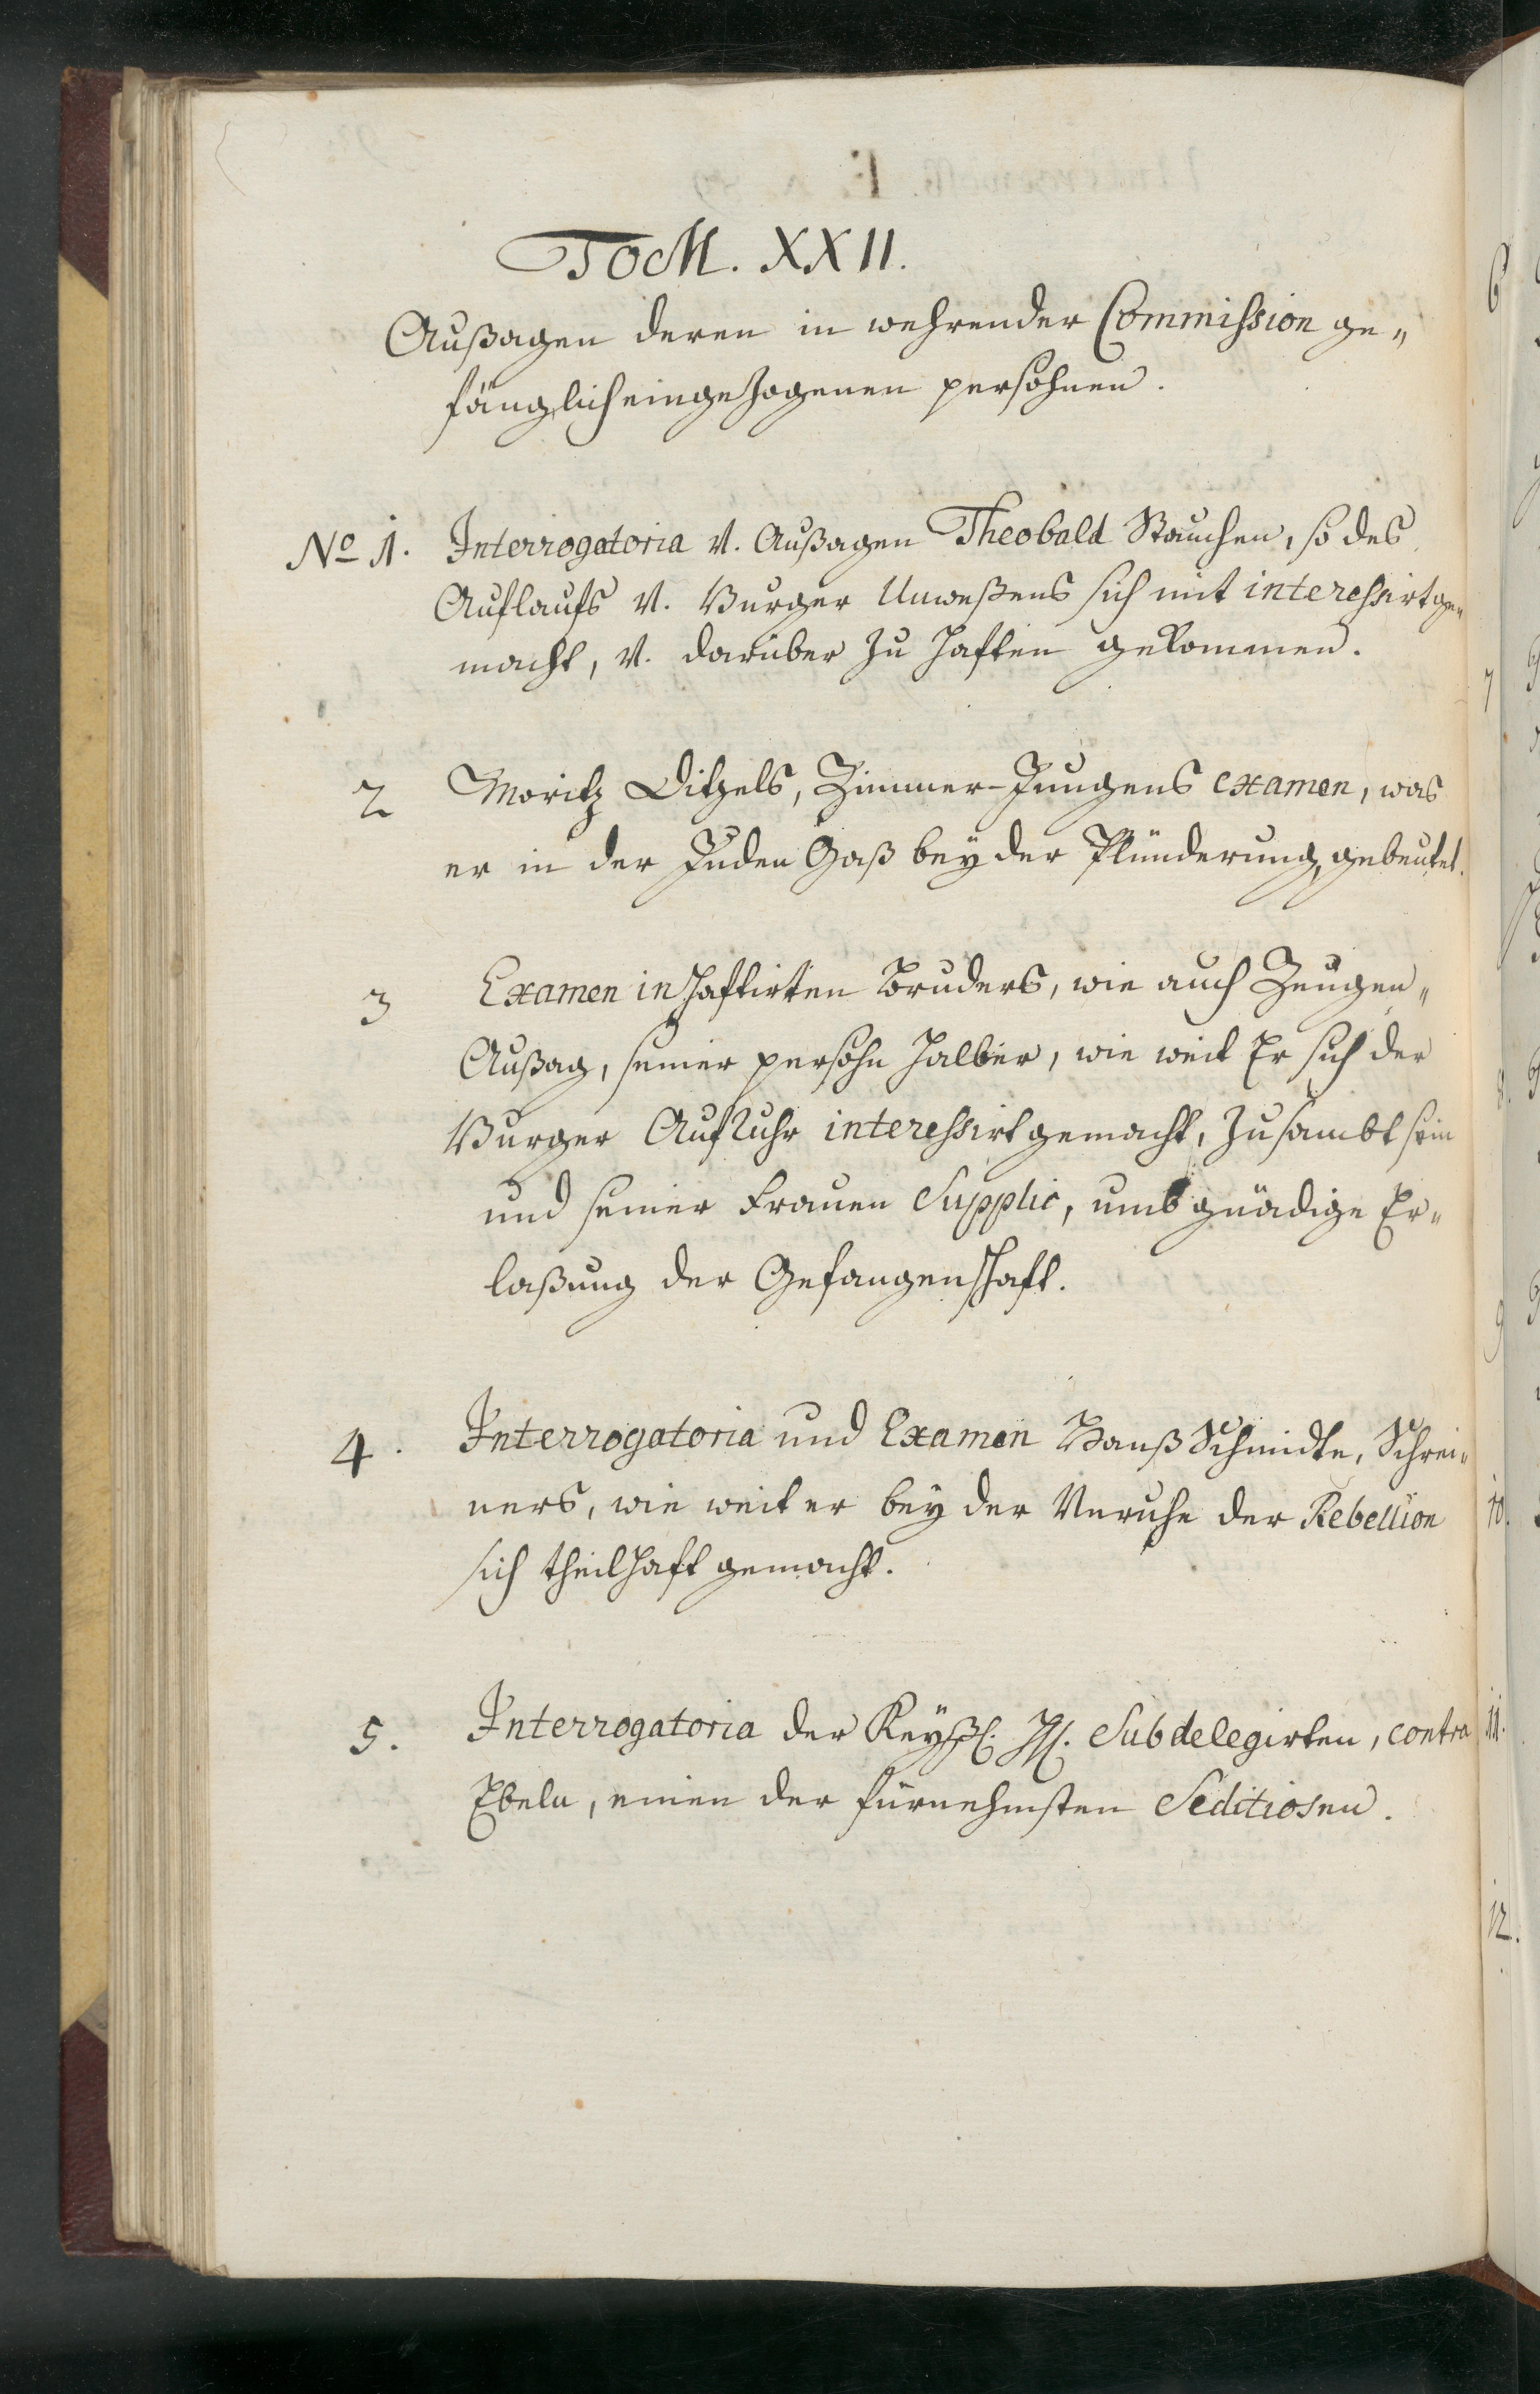 TOM. XXII.
Außagen deren in wehrender Commission ge„
fänglich eingezogenen persohnen.
No 1. Interrogatoria v. Außagen Theobald Stauchen, so des
Auflaufs v. Burger Unweßens sich mit interessirt ge„
macht, v. darüber zu Haften gekommen.
2 Moritz Ditzels, Zimmer-Jungens examen, was
er in der Juden Gaß bey der Plünderung, gebeutet.
3 Examen inhaftirten Bruders, wie auch Zeugen„
Außag, seiner persohn halber, wie weit Er sich der
Burger Aufruhr interessirt gemacht, zusambt sein
und seiner Frauen Supplic, umb gnädige Er„
laßung der Gefangenschaft.
4. Interrogatoria und Examen Hanß Schmidte, Schrei„
ners, wie weit er bey der Unruhe der Rebellion
sich theilhaft gemacht.
5. Interrogatoria der Keyßl. HH. Subdelegirten, contra
Ebeln, einen der fürnehmsten Seditiosen.
6
7
8.
9
10.
11.
12.